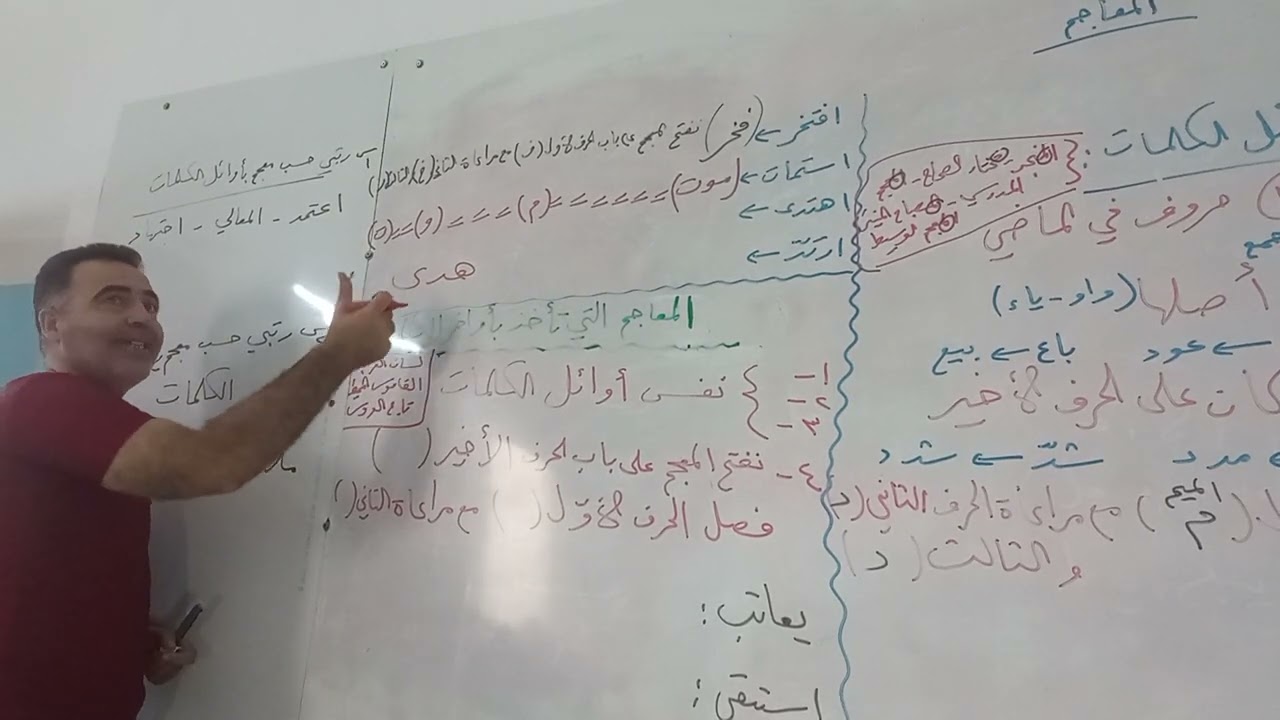 المعاجم
ل الكلمات :
المنجد - مختار الصحاح - المعجم
المدرسي - مصباح المنير
المعجم الوسيط
حروف في الماضي
جمع
أصلها (واو - ياء)
عود باع بيع
على الحرف الأخير
مدد شدّ شدد
(الميم م) مع مراعاة الحرف الثاني (د)
والثالث (د)
افتخر (فخر) نفتح المعجم على باب الحرف الأول (ف) مع مراعاة الثاني (خ)
استمات (موت) = = = = = = (م) = = = = (و) = = (ت)
اهتدى
ارتدّ
هدى
المعاجم التي تأخذ بأواخر
١-
٢-
٣-
نفس أوائل الكلمات
لسان العرب
القاموس المحيط
تاج العروس
٤- نفتح المعجم على باب الحرف الأخير ( )
فصل الحرف الأول ( ) مع مراعاة الثاني ( )
يعاتب :
استبقى :
س رتبي حسب معجم بأوائل الكلمات
اعتمد - المعالي - اجتهاد
س رتبي حسب معجم
الكلمات